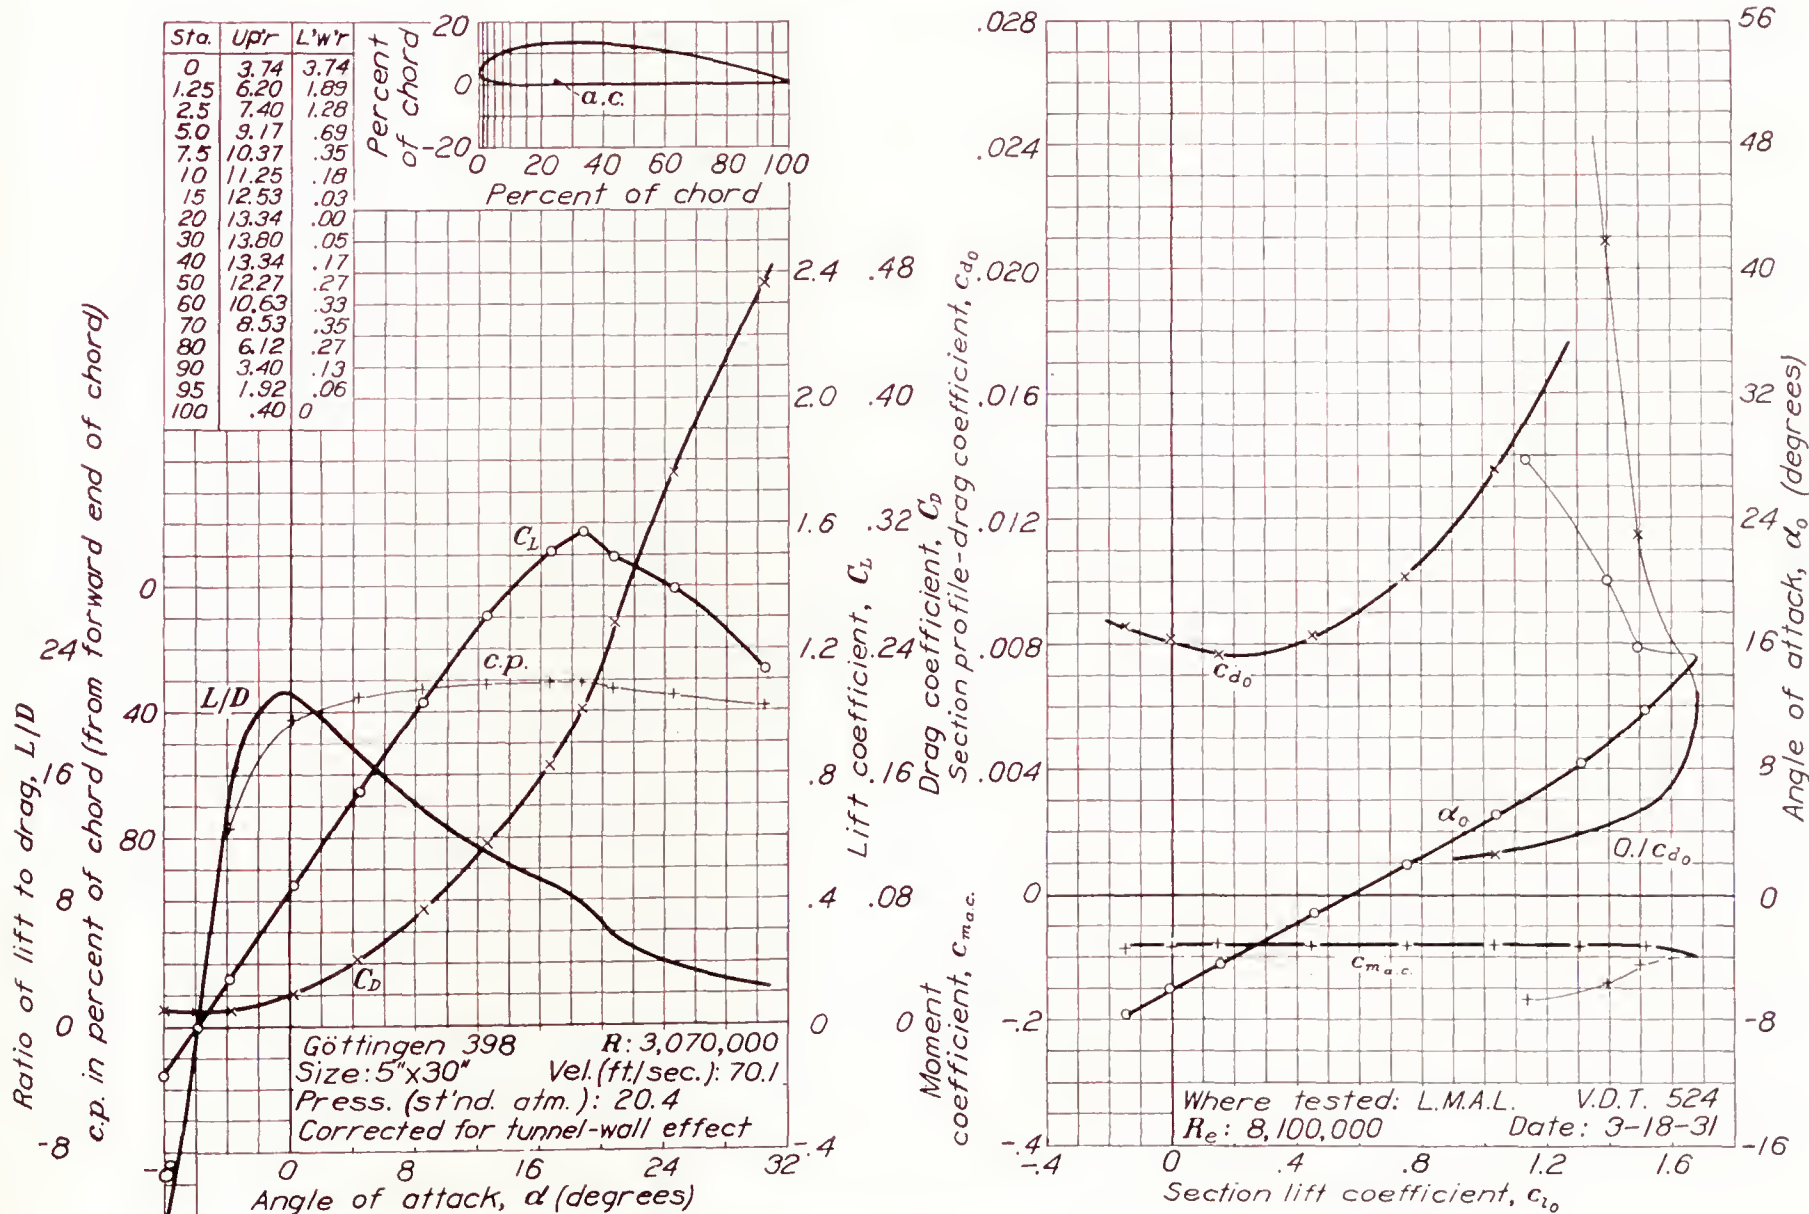 Sta. Up'r L'w'r
0 3.74 3.74
1.25 6.20 1.89
2.5 7.40 1.28
5.0 9.17 .69
7.5 10.37 .35
10 11.25 .18
15 12.53 .03
20 13.34 .00
30 13.80 .05
40 13.34 .17
50 12.27 .27
60 10.63 .33
70 8.53 .35
80 6.12 .27
90 3.40 .13
95 1.92 .06
100 .40 0
Percent of chord
20
0
-20
a.c.
0 20 40 60 80 100
Percent of chord
Ratio of lift to drag, L/D
24
16
8
0
-8
c.p. in percent of chord (from forward end of chord)
0
40
80
L/D
c.p.
C_L
C_D
2.4 .48
2.0 .40
1.6 .32
1.2 .24
.8 .16
.4 .08
0 0
-.4
Lift coefficient, C_L
Drag coefficient, C_D
Göttingen 398 R: 3,070,000
Size: 5"x30" Vel. (ft./sec.): 70.1
Press. (st'nd. atm.): 20.4
Corrected for tunnel-wall effect
-8 0 8 16 24 32
Angle of attack, α (degrees)
Section profile-drag coefficient, c_d0
.028
.024
.020
.016
.012
.008
.004
0
-.2
-.4
Moment coefficient, c_ma.c.
c_d0
α_0
0.1 c_d0
c_ma.c.
56
48
40
32
24
16
8
0
-8
-16
Angle of attack, α_0 (degrees)
Where tested: L.M.A.L. V.D.T. 524
R_e: 8,100,000 Date: 3-18-31
-.4 0 .4 .8 1.2 1.6
Section lift coefficient, c_l0